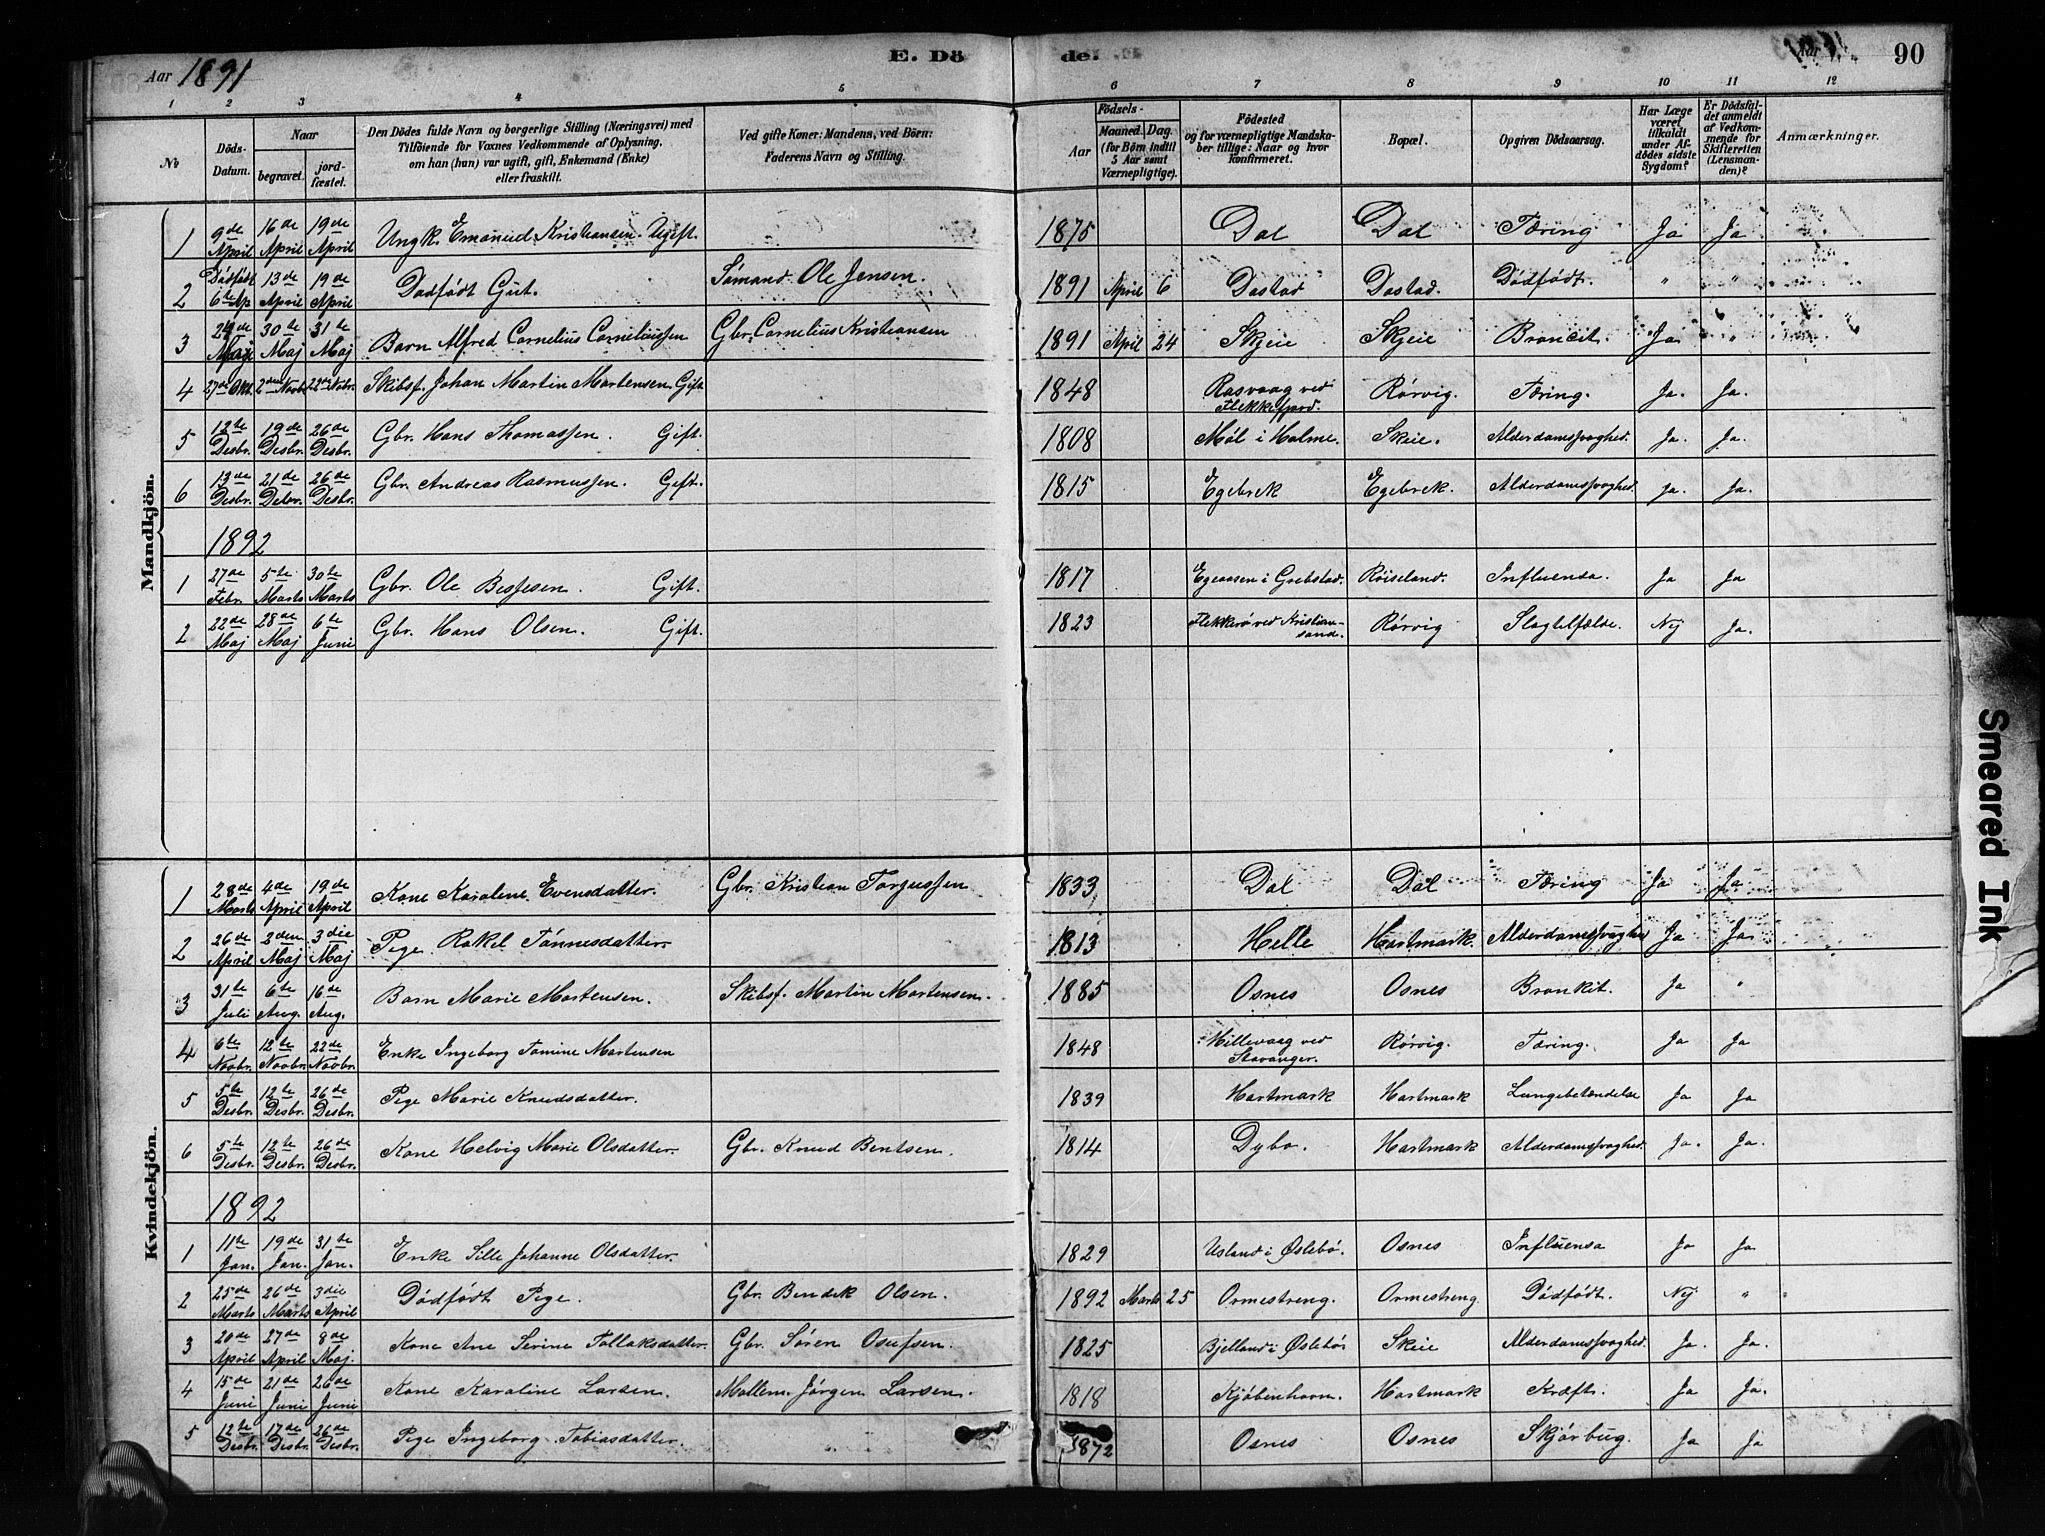 Aar 1891 E. Döde. Aar 90
1 2 3 4 5 6 7 8 9 10 11 12
No Döds-Datum. Naar begravet. jordfæstet. Den Dödes fulde Navn og borgerlige Stilling (Næringsvei) med Tilföiende for Voxnes Vedkommende af Oplysning, om han (hun) var ugift, gift, Enkemand (Enke) eller fraskilt. Ved gifte Koner: Mandens, ved Börn: Faderens Navn og Stilling. Födsels- Aar Maaned. Dag. (for Börn indtil 5 Aar samt Værnepligtige). Födested og for værnepligtige Mandskaber tillige: Naar og hvor konfirmeret. Bopæl. Opgiven Dödsaarsag. Har Læge været tilkaldt under Afdödes sidste Sygdom? Er Dödsfaldet anmeldt af Vedkommende for Skifteretten (Lensmanden)? Anmærkninger.
Mandkjön.
1 9de April 16de April 19de April Ungk. Emanuel Kristiansen. Ugift. 1875 Dal Dal Tæring Ja Ja
2 Dødfødt 6te Ap 13de April 19de April Dødfødt Gut. Sømand Ole Jensen. 1891 April 6 Dastad Dastad. Dødfødt. " "
3 24de Maj 30te Maj 31te Maj Barn Alfred Cornelius Corneliussen Gbr. Cornelius Kristiansen 1891 April 24 Skjeie Skjeie Broncit. Ja "
4 27de Okt. 2den Novbr. 22de Novbr. Skibsf. Johan Martin Martensen. Gift 1848 Rasvaag ved Flekkefjord. Rørvig. Tæring. Ja. Ja.
5 12te Desbr. 19de Desbr. 26de Desbr. Gbr. Hans Thomassen. Gift. 1808 Møl i Holme. Skeie. Alderdomssvaghed. Ja. Ja.
6 13de Desbr. 21de Debr. 26de Desbr. Gbr. Andreas Rasmussen. Gift. 1815 Egebrek Egebrek. Alderdomssvaghed. Ja. Ja.
1892
1 27de Febr. 5te Marts 30te Marts Gbr. Ole Bessesen. Gift. 1817 Egeaasen i Grebstad. Røiseland. Influensa. Ja Ja
2 22de Maj 28de Maj 6te Juni Gbr. Hans Olsen. Gift. 1823 Flekkerø ved Kristiansand. Rørvig Slagtilfælde. Nej Ja.
Kvindekjön.
1 28de Marts 4de April 19de April Kone Karoline Evensdatter. Gbr. Kristian Torgussen 1833 Dal Dal Tæring Ja Ja
2 26de April 2den Maj 3die Maj Pige Rakel Tønnesdatter 1813 Helle Hartmark. Alderdomssvaghed Ja Ja.
3 31te Juli 6te Aug. 16de Aug. Barn Marie Martensen. Skibsf. Martin Martensen. 1885 Osnes Osnes Bronkit. Ja "
4 6te Novbr. 12te Novbr. 22de Novbr. Enke Ingeborg Tomine Martensen 1848 Hillevaag ved Stavanger. Rørvig. Tæring. Ja Ja
5 5te Desbr. 12te Desbr. 26de Desbr. Pige Marie Knudsdatter. 1839 Hartmark Hartmark Lungebetændelse Ja Ja
6 5te Desbr. 12te Desbr. 26de Desbr. Kone Helvig Marie Olsdatter. Gbr. Knud Bentsen. 1814 Dybo. Hartmark Alderdomssvaghed. Ja. Ja.
1892
1 11te Jan. 19de Jan. 31te Jan. Enke Sille Johanne Olsdatter. 1829 Usland i Øslebø. Osnes Influensa Ja Ja
2 25de Marts 26de Marts 3die April Dødfødt Pige. Gbr. Bendik Olsen. 1892 Marts 25 Ormestreng. Ormestreng Dødfødt. Nej "
3 20de April 27de April 8de Maj. Kone Ane Serine Tollaksdatter. Gbr. Søren Osufsen. 1825 Bjelland i Øslebø Skeie Alderdomssvaghed. Ja. Ja.
4 15de Juni 21de Juni 26de Juni Kone Karoline Larsen. Mallem. Jørgen Larsen. 1818 Kjøbenhavn. Hartmark Kræft. Ja Ja.
5 12te Desbr. 17de Desbr. 26de Desbr. Pige Ingeborg Tobiasdatter. 1872 Osnes Osnes Skjørbug. Ja Ja
Smeared Ink